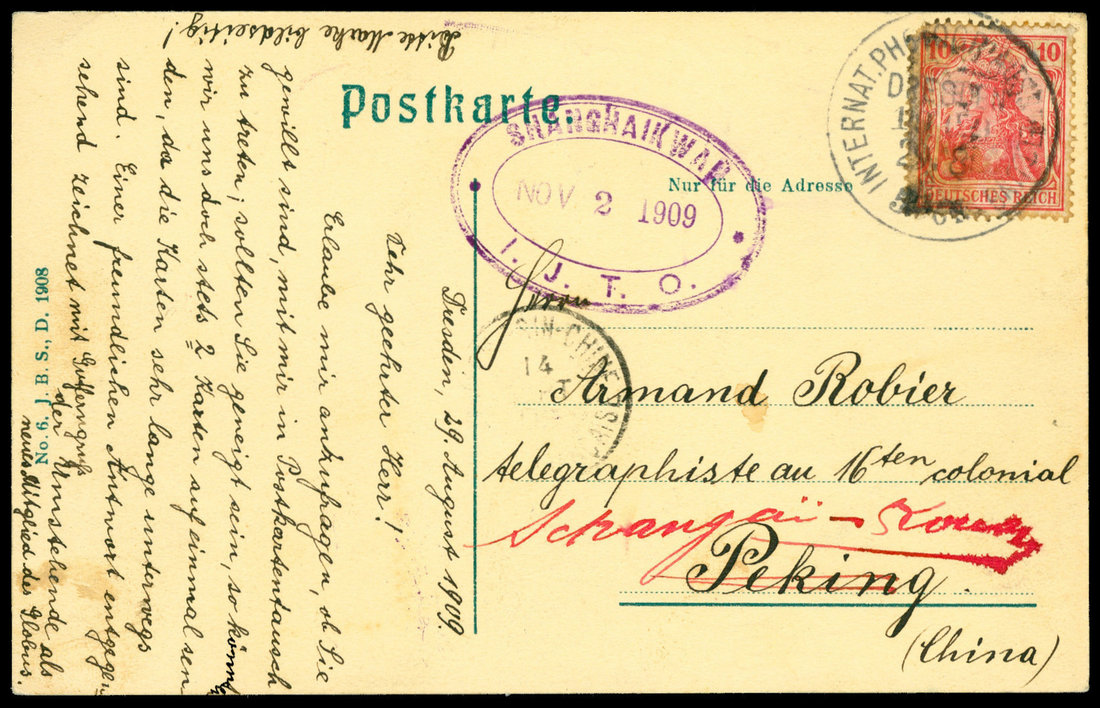 Postkarte.
Nur für die Adresse
Herrn
Armand Robier
telegraphiste au 16ten colonial
Schangaï-Kouan
Peking.
(China)
Dresden, 29. August 1909.
Sehr geehrter Herr!
Erlaube mir anzufragen, ob Sie
gewillt sind, mit mir in Postkartentausch
zu treten; sollten Sie geneigt sein, so könn
wir uns doch stets 2 Karten auf einmal sen
den, da die Karten sehr lange unterwegs
sind. Einer freundlichen Antwort entgegen
sehend zeichnet mit
der Umstehende als
neues Mitglied des Globus.
Bitte Marke bildseitig!
No. 6. J. B. S., D. 1908
SHANGHAIKWAN
NOV. 2 1909
I. J. T. O.
INTERNAT. PHOTOGR.
10 10
DEUTSCHES REICH
14